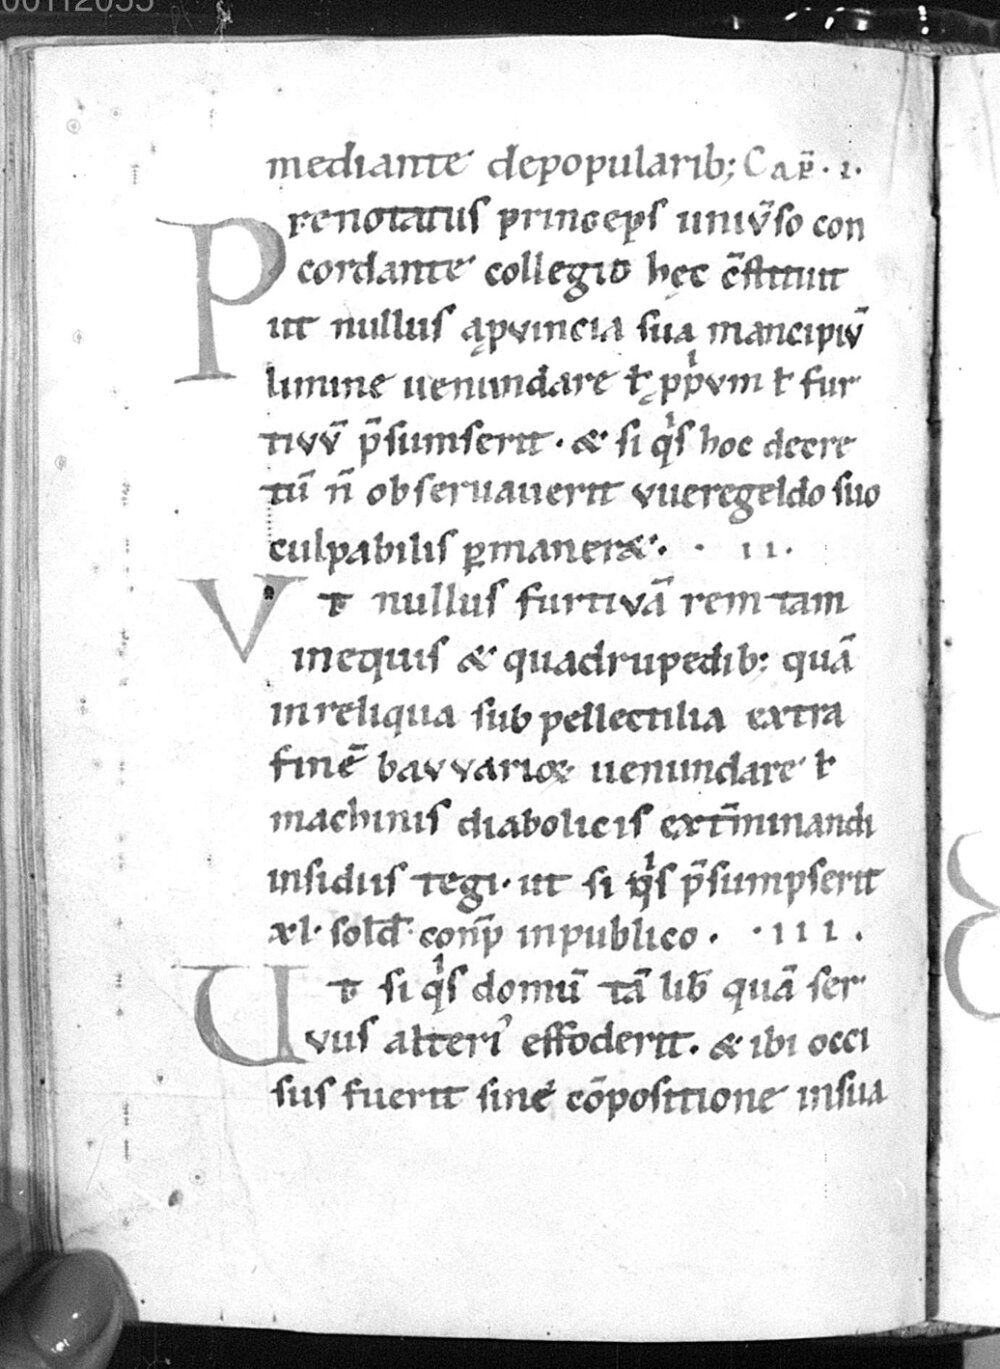 mediante depopularib; Cap̄ · i ·
Prenotatus princeps uniūso con
cordante collegio hęc c̄stituit
ut nullus ąpvincia sua mancipiv̄
limine uenundare ꝉ ppͥvm ꝉ fur
tivv̄ p̄sumserit · & si qͥs hoc decre
tū n̄ obseruauerit vueregeldo suo
culpabilis ꝑmaner& · · ii ·
Vt nullus furtivā rem tam
inequis & quadrupedib: quā
inreliqua subpellectilia extra
finē bavvarioꝝ uenundare ꝉ
machinis diabolicis ext̄minandi
insidiis tegi · ut si qͥs p̄sumpserit
xl · sold · conp̄ inpublico · · iii ·
Ut si qͥs domū tā lib̄ quā ser
vus alteriꝰ effoderit · & ibi occi
sus fuerit sine cōpositione insua